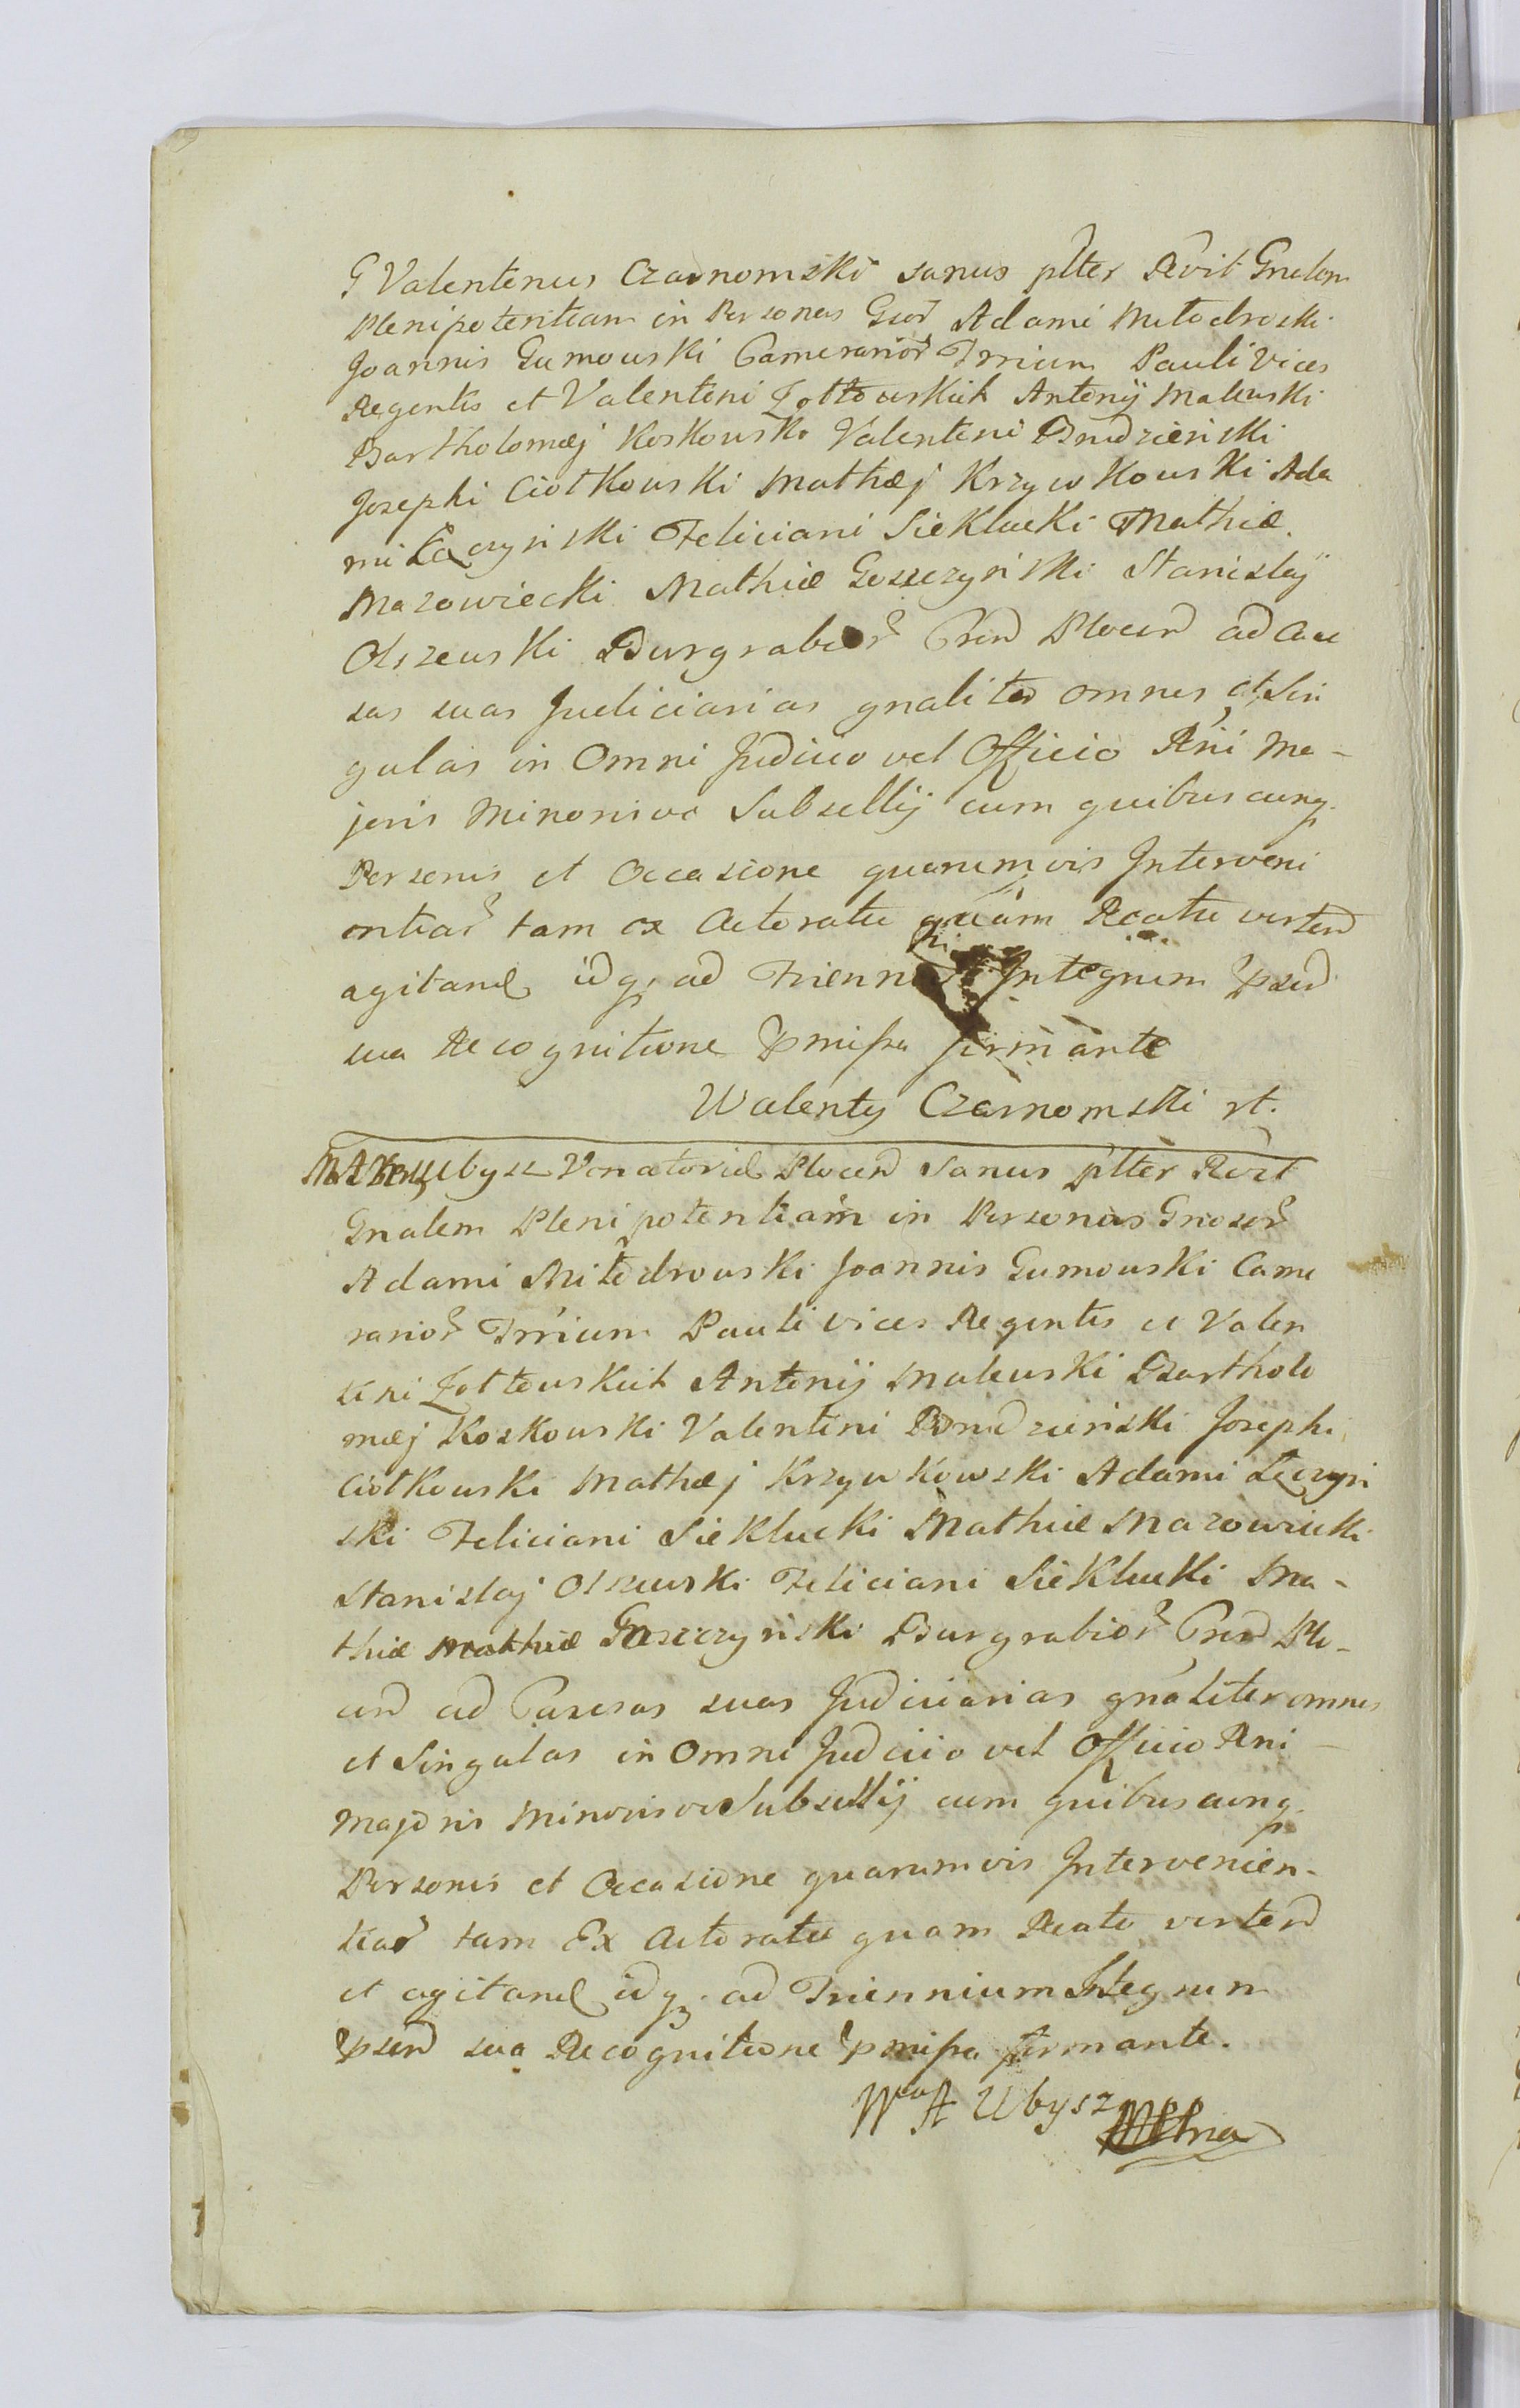 G Valentinus Czarnomski sanus plter Rcvit Gnalem
Plenipotentiam in Personas Gsor Adami Mitodroski
Joannis Gumouski Camerarior Trrium Pauli Vices
Regentis et Valentini Zottouskich Antonij Maleuski
Bartholomæj Koskouski Valentini Brudzieński
Josephi Ciołkouski Mathæj Krzywkouski Ada
mi Łączyński Feliciani Sieklucki Mathiæ
Mazowiecki Mathiæ Goszczyński Stanislaj
Olszeuski Burgrabior Cnen Plocen ad Cau
sas suas Judiciarias gnaliter omnes et Sin
gulas in Omni Judicio vel Officio Rni Ma-
joris Minorisve Subsellij cum quibuscunq
Personis et Occasione quarumvis Interveni
entiar tam ex Actoratu quam Reatu verten
agitand idq ad Trienni Integrum psen
sua Recognitione pmissa firmante
Walenty Czarnomski rt.
Ubysz Venatorid Plocen Sanus plter Rcvit
Gnalem Plenipotentiam in Personas Gnosor
Adami Mitodrouski Joannis Gumouski Came
rarior Trrium Pauli vices Regentis et Valen
tini Zottouskich Antonij Maleuski Bartholo
mæj Koskouski Valentini Brudzieński Josephi
Ciołkouski Mathæj Krzywkowski Adami Łączyń
ski Feliciani Sieklucki Mathiæ Mazowiecki
Stanislaj Olszeuski Feliciani Sieklucki Ma-
thiæ Mathiæ Goszczyński Burgrabior Cnen Plo-
cen ad Causas suas Judiciarias gnaliter omnes
et Singulas in Omni Judicio vel Officio Rni
Majoris Minorisve Subsellij cum quibuscunq
Personis et Occasione quarumvis Intervenien-
tiar tam Ex Actoratu quam Reatu verten
et agitand idq ad Triennium Integrum
psen sua Recognitione pmissa firmante.
A Ubysz